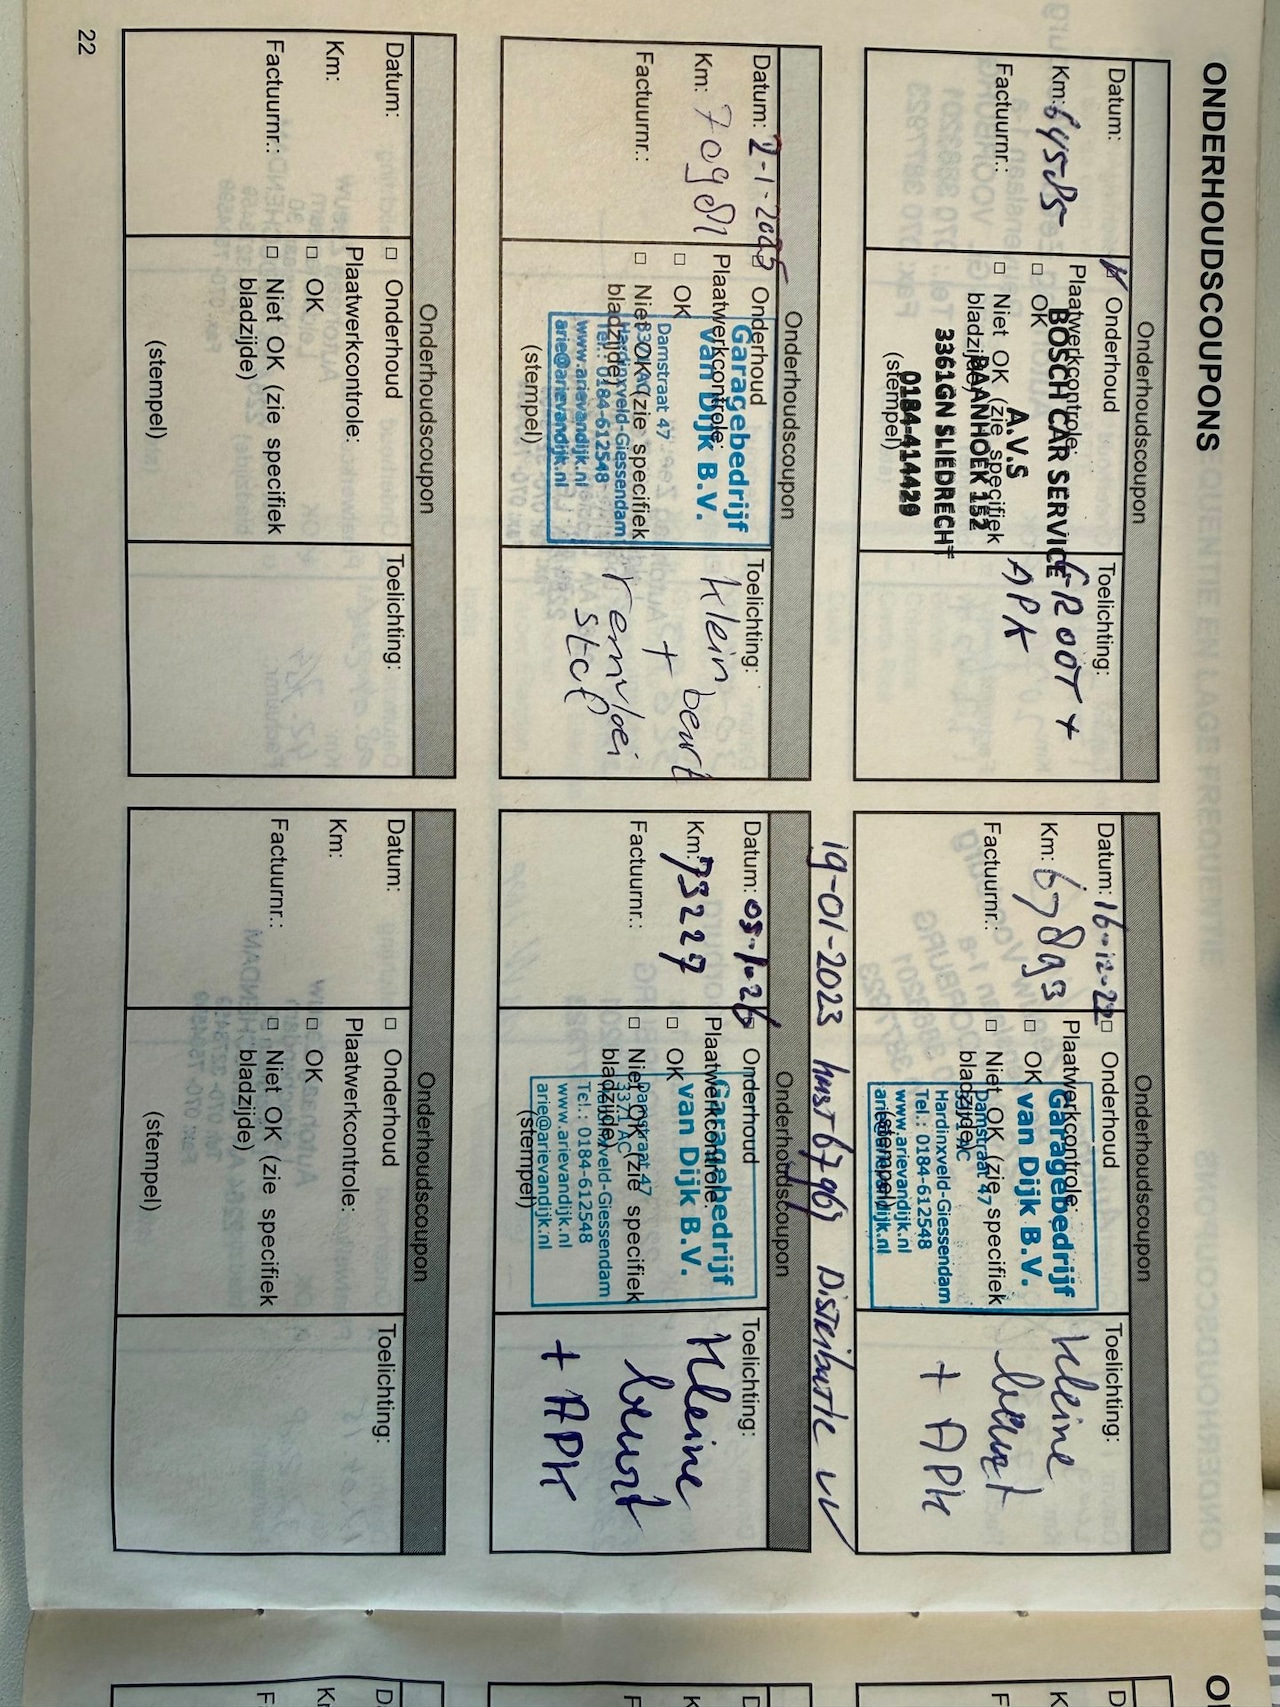 ONDERHOUDSCOUPONS
Onderhoudscoupon
Datum:
Km: 64585
Factuurnr.:
Onderhoud
Plaatwerkcontrole:
OK
Niet OK (zie specifiek
bladzijde)
(stempel)
BOSCH CAR SERVICE
A.V.S
BAANHOEK 152
3361GN SLIEDRECHT
0184-414429
Toelichting:
GROOT +
APK
Onderhoudscoupon
Datum: 16-12-22
Km: 67893
Factuurnr.:
Onderhoud
Plaatwerkcontrole:
OK
Niet OK (zie specifiek
bladzijde)
(stempel)
Garagebedrijf
van Dijk B.V.
Damstraat 47
Hardinxveld-Giessendam
Tel.: 0184-612548
www.arievandijk.nl
arie@arievandijk.nl
Toelichting:
Kleine
beurt
+ APK
19-01-2023 Distributie
Onderhoudscoupon
Datum: 2-1-2025
Km: 70981
Factuurnr.:
Onderhoud
Plaatwerkcontrole:
OK
Niet OK (zie specifiek
bladzijde)
(stempel)
Garagebedrijf
van Dijk B.V.
Damstraat 47
Hardinxveld-Giessendam
Tel.: 0184-612548
www.arievandijk.nl
arie@arievandijk.nl
Toelichting:
klein beurt
+
remvloei
stof
Onderhoudscoupon
Datum: 05-1-26
Km: 73227
Factuurnr.:
Onderhoud
Plaatwerkcontrole:
OK
Niet OK (zie specifiek
bladzijde)
(stempel)
Garagebedrijf
van Dijk B.V.
Damstraat 47
3371 AC
Hardinxveld-Giessendam
Tel.: 0184-612548
www.arievandijk.nl
arie@arievandijk.nl
Toelichting:
Kleine
beurt
+ APK
Onderhoudscoupon
Datum:
Km:
Factuurnr.:
Onderhoud
Plaatwerkcontrole:
OK
Niet OK (zie specifiek
bladzijde)
(stempel)
Toelichting:
Onderhoudscoupon
Datum:
Km:
Factuurnr.:
Onderhoud
Plaatwerkcontrole:
OK
Niet OK (zie specifiek
bladzijde)
(stempel)
Toelichting:
22